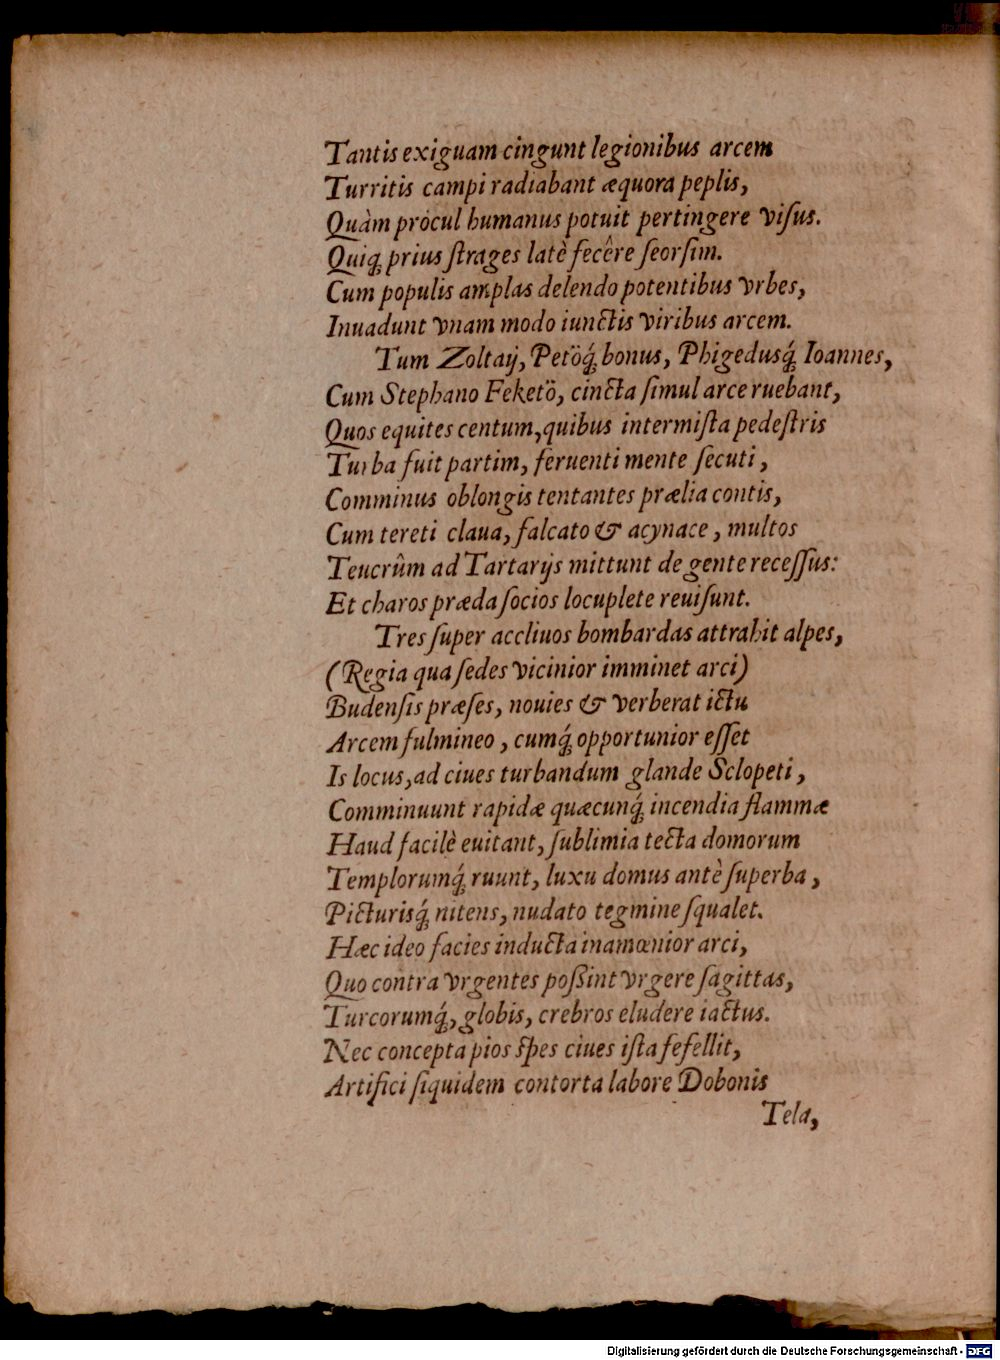 Tantis exiguam cingunt legionibus arcem
Turritis campi radiabant æquora peplis,
Quàm procul humanus potuit pertingere viſus.
Quiq́; prius ſtrages latè fecêre ſeorſim.
Cum populis amplas delendo potentibus vrbes,
Inuadunt vnam modo iunctis viribus arcem.
Tum Zoltaÿ, Petöq́; bonus, Phigedusq́; Ioannes,
Cum Stephano Feketö, cincta ſimul arce ruebant,
Quos equites centum, quibus intermiſta pedeſtris
Turba fuit partim, feruenti mente ſecuti,
Comminus oblongis tentantes prælia contis,
Cum tereti claua, falcato & acynace, multos
Teucrûm ad Tartarijs mittunt de gente receſſus:
Et charos præda ſocios locuplete reuiſunt.
Tres ſuper accliuos bombardas attrahit alpes,
(Regia qua ſedes vicinior imminet arci)
Budenſis præſes, nouies & verberat ictu
Arcem fulmineo, cumq́; opportunior eſſet
Is locus, ad ciues turbandum glande Sclopeti,
Comminuunt rapidæ quæcunq́; incendia flammæ
Haud facilè euitant, ſublimia tecta domorum
Templorumq́; ruunt, luxu domus antè ſuperba,
Picturisq́; nitens, nudato tegmine ſqualet.
Hæc ideo facies inducta inamœnior arci,
Quo contra vrgentes poſsint vrgere ſagittas,
Turcorumq́;, globis, crebros eludere iactus.
Nec concepta pios ſpes ciues iſta fefellit,
Artifici ſiquidem contorta labore Dobonis
Tela,
Digitalisierung gefördert durch die Deutsche Forschungsgemeinschaft - DFG